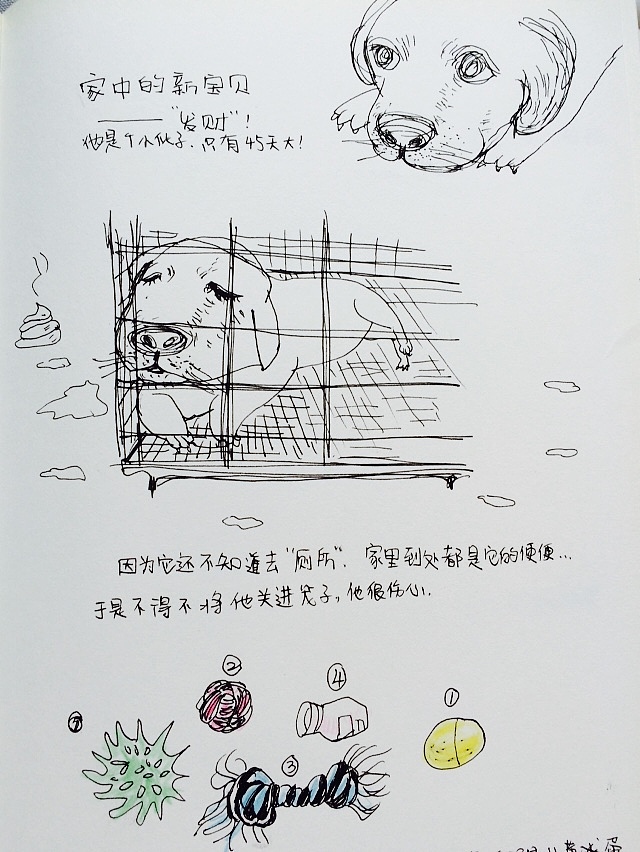 家中的新宝贝
——“发财”!
他是个小伙子.只有45天大!
因为它还不知道去“厕所”.家里到处都是它的便便...
于是不得不将他关进笼子,他很伤心.
②
④
①
③